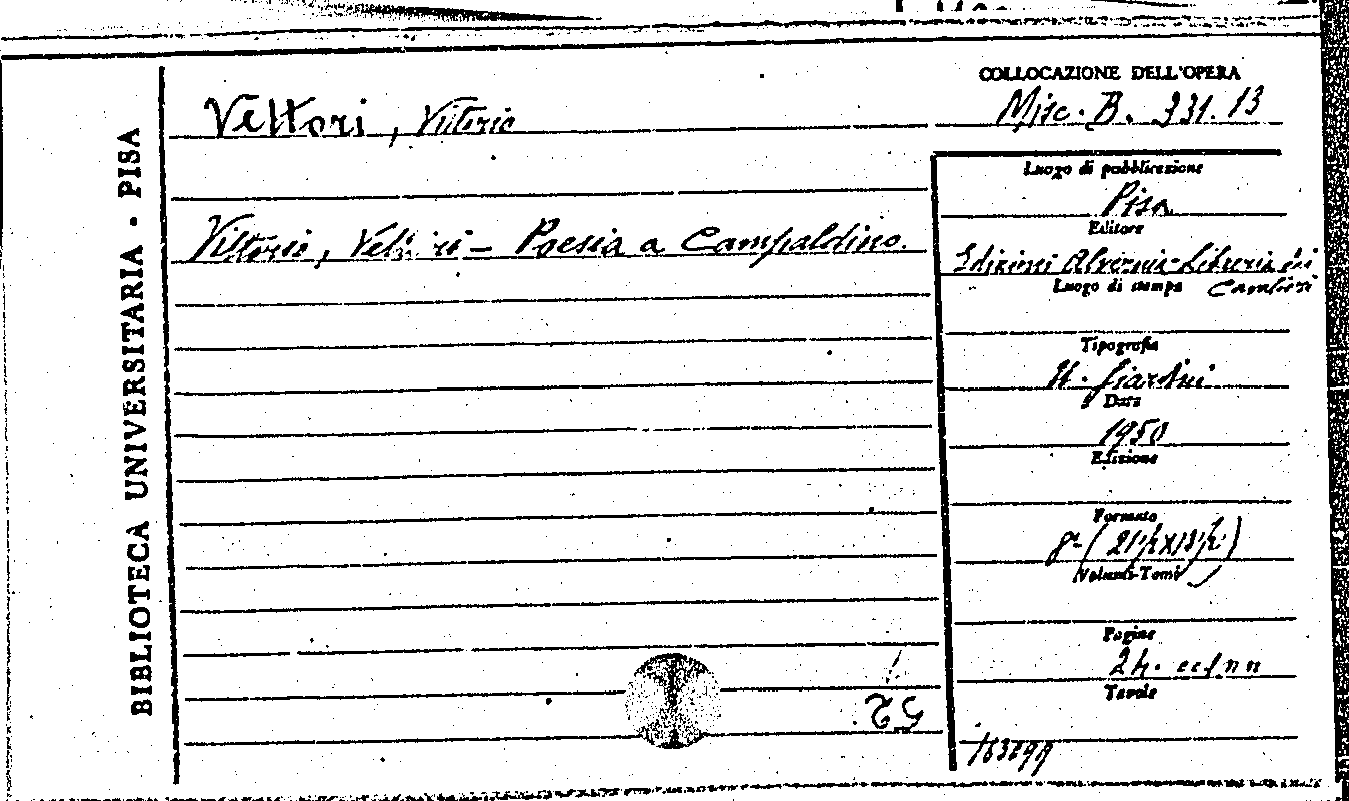 BIBLIOTECA UNIVERSITARIA - PISA
Vettori, Vittorio
Vittorio, Vettori - Poesia a Campaldino.
COLLOCAZIONE DELL'OPERA
Misc. B. 331.13
Luogo di pubblicazione
Pisa
Editore
Edizioni Alvernia-Libreria dei
Luogo di stampa
Tipografia
U. Giardini
Data
1950
Edizione
Formato
8° (21½x13½)
Volumi-Tomi
Pagine
24.
Tavole
52